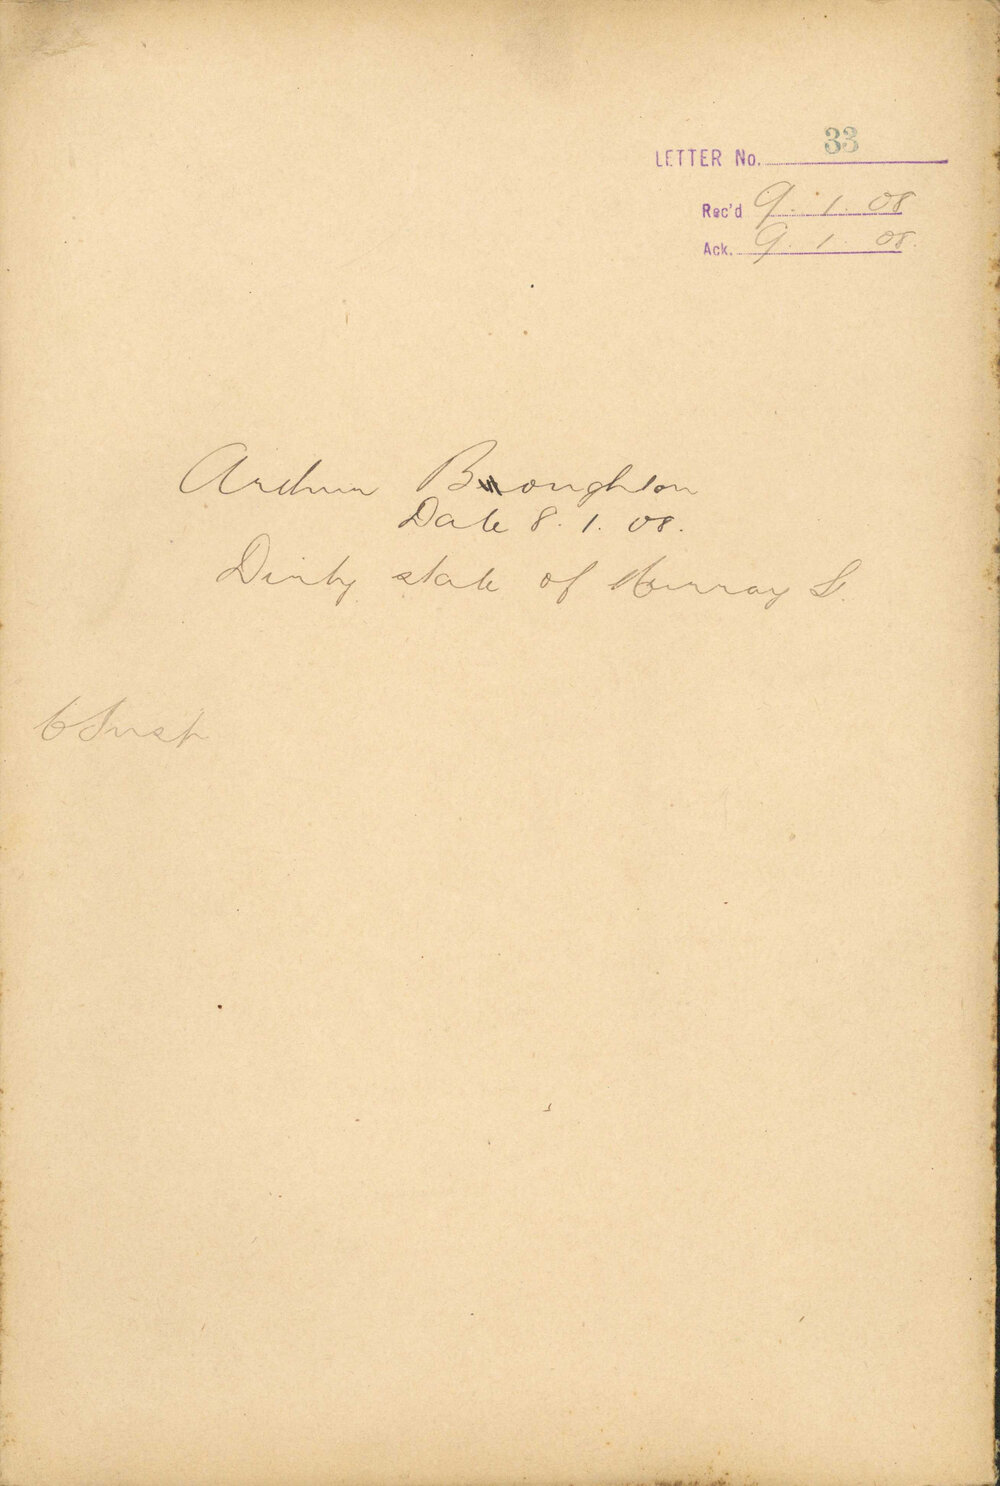 LETTER No. 33
Rec'd 9. 1. 08
Ack. 9. 1. 08.
Arthur Broughton
Date 8. 1. 08.
Dirty state of Murray St.
C Insp